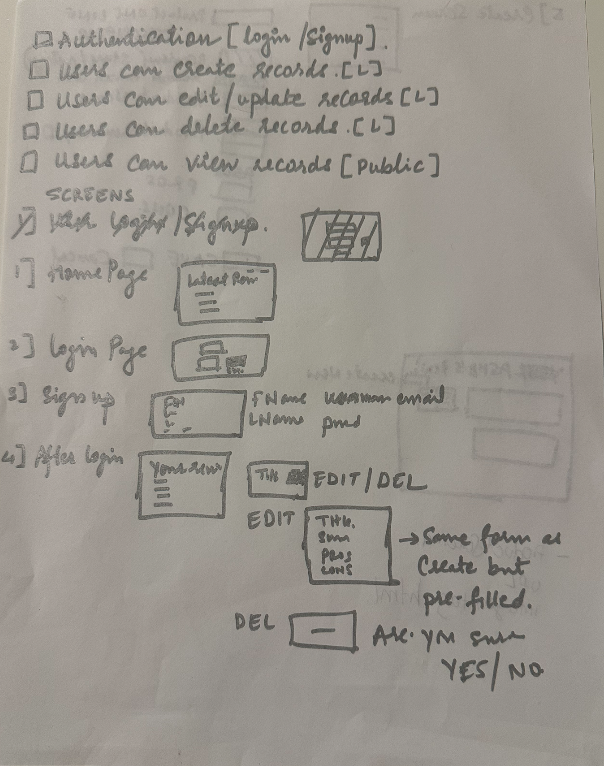 Authentication [login/signup].
Users can create records. [L]
Users can edit/update records [L]
Users can delete records. [L]
Users can view records [Public]
SCREENS
1] Login/Signup.
1] Home Page
Latest Rev
2] Login Page
3] Sign up
FName email
LName pwd
4] After login
Your rev
Title
EDIT/DEL
EDIT
Title
Summ
PROS
CONS
→ Same form as
Create but
pre-filled.
DEL
Are you sure
YES/NO